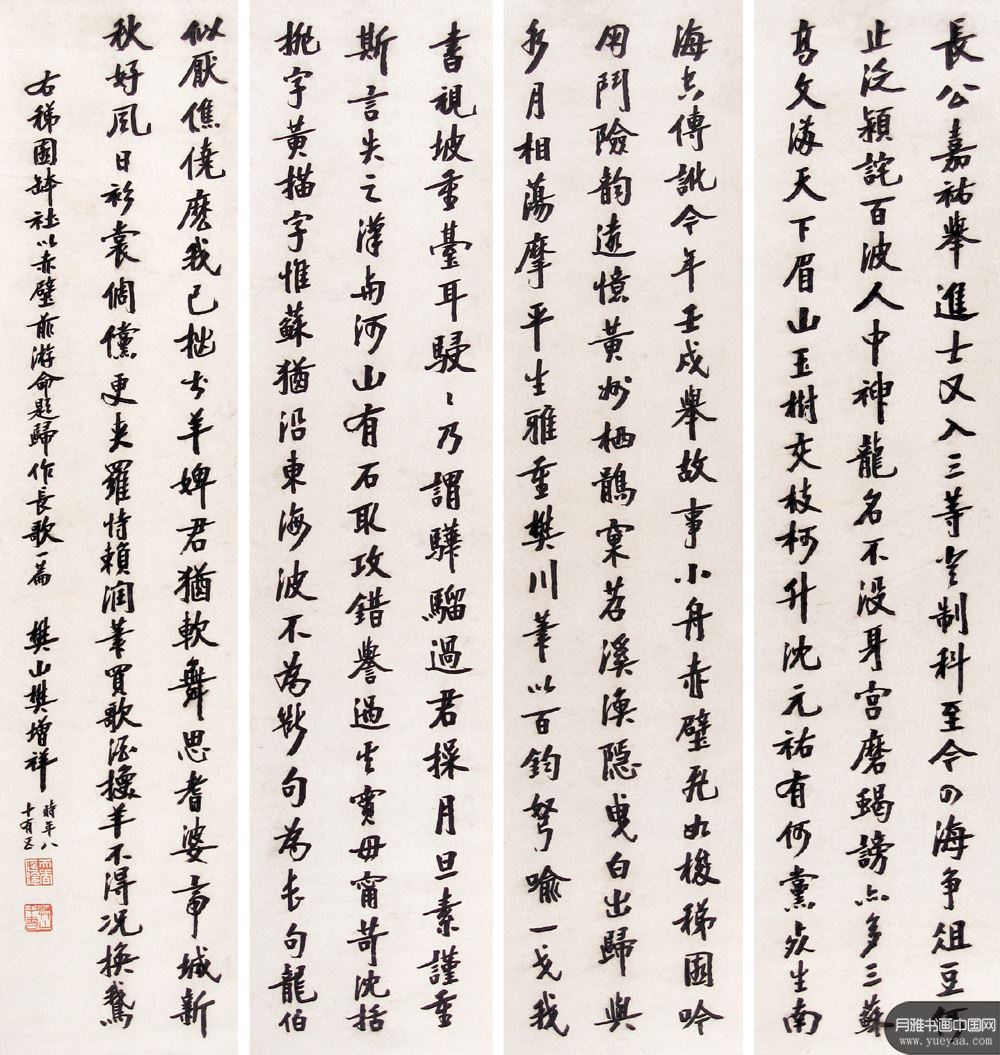 長公嘉祐舉進士又入三等空制科至今四海爭俎豆何
止泛潁詫百波人中神龍名不沒身宮磨蝎謗亦多三蘇
高文滿天下眉山玉樹交枝柯升沈元祐有何黨生南
海亦傳訛今年壬戌舉故事小舟赤壁飛如梭稊園吟
用鬥險韵遠憶黃州栖鶻窠苕溪漁隱曳白出歸與
水月相蕩摩平生雅重樊川筆以百鈞弩喻一戈我
書視坡重臺耳駸〻乃謂驊騮過君操月旦素謹重
斯言失之漢與河山有石取攻錯譽過失實毋甯苛沈括
字黃描字惟蘇猶沿東海波不為斷句為長句龍伯
似厭僬僥麽我已拙書羊婢君猶軟舞思耆婆帝城新
秋好風日衫裳倜儻更夾羅恃賴潤筆買歌酒換羊不得况換鵞
右稊園鉢社以赤壁前游命題歸作長歌一篇 樊山樊增祥
時年八
十有五
月雅书画中国网
www.yueyaa.com